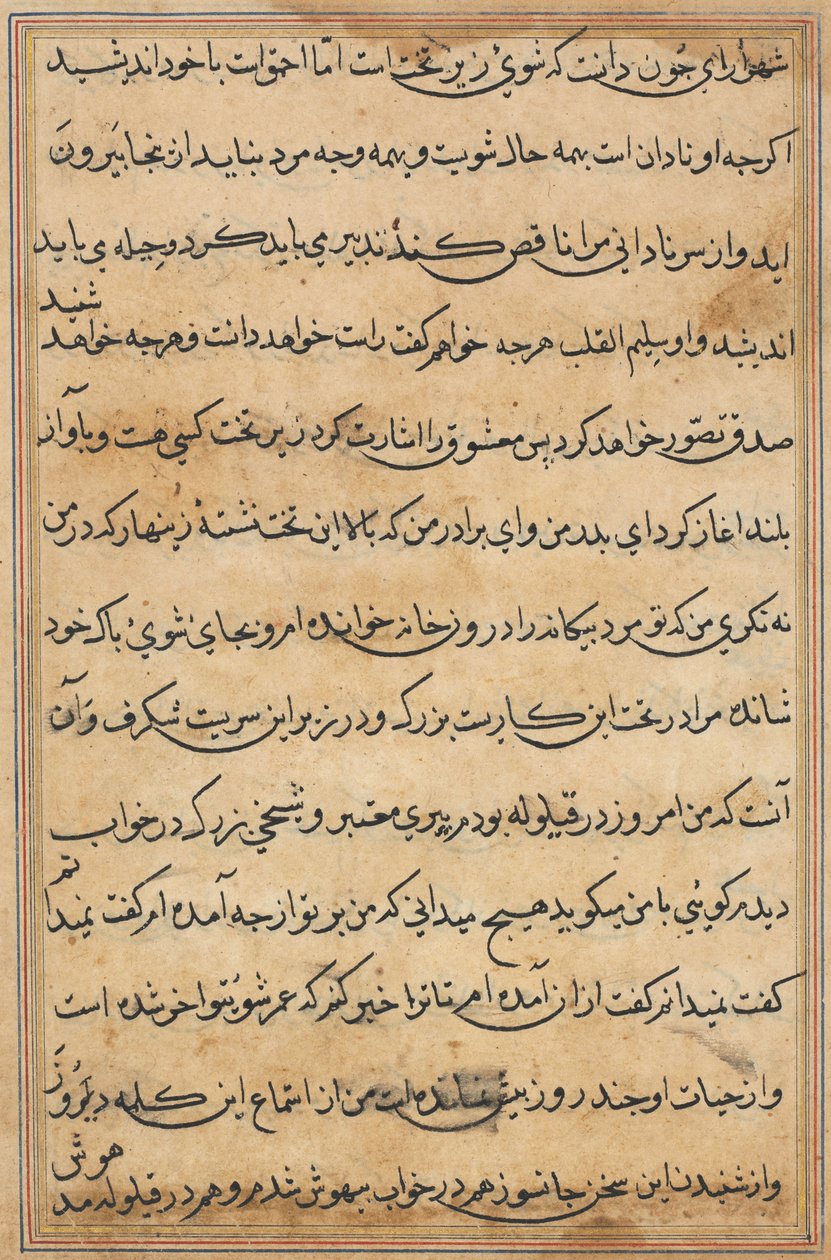 شهرآرای جون دانت که شوئ زیر تخت است امّا احمق است با خود اندیشید
اکرجه او نادان است بهمه حال شویست و بهمه وجه مرد بناید از بنجا بیَرونَ
اید و از سر نادانی مرا ناقص کند تدبیر می باید کرد و حِیله می باید
اندیشید و او سِلیم القلب هرجه خواهم کفت راست خواهد دانت و هرجه خواهد شنید
صدق تصّور خواهد کرد پس معشوق را اشارت کرد زیر تخت کسی هست و باوآز
بلند اغاز کرد ای بدر من و ای برادر من که بالا این تخت نشستهٔ زینهار که در من
نه نکری من که تو مرد بیکانه را در روز خانه خوانده امروز بجایٔ شویٔ باک خود
شانده مرا در تخت این کاریست بزرک و در زیر این سریست شکرف وَآن
آنست که من امروز در قیّلوله بودم پیری معتبر و شیخی بزرک در خواب
دیدم کوئیی با من میکوید هیج میدانی که من بر تو از جه آمده ام کفت نمیدانم
کفت نمیدانم کفت از ان آمده ام تا ترا خبر کنم که عمر شوُیتو اخر شده است
و از حیات او جند روز بیش نمانده است من از استماع این کلمه دیلروز
و از شنیدن این سخن جانسوز هم در خواب بیهوش شدم و هم در قیلوله مد هوش